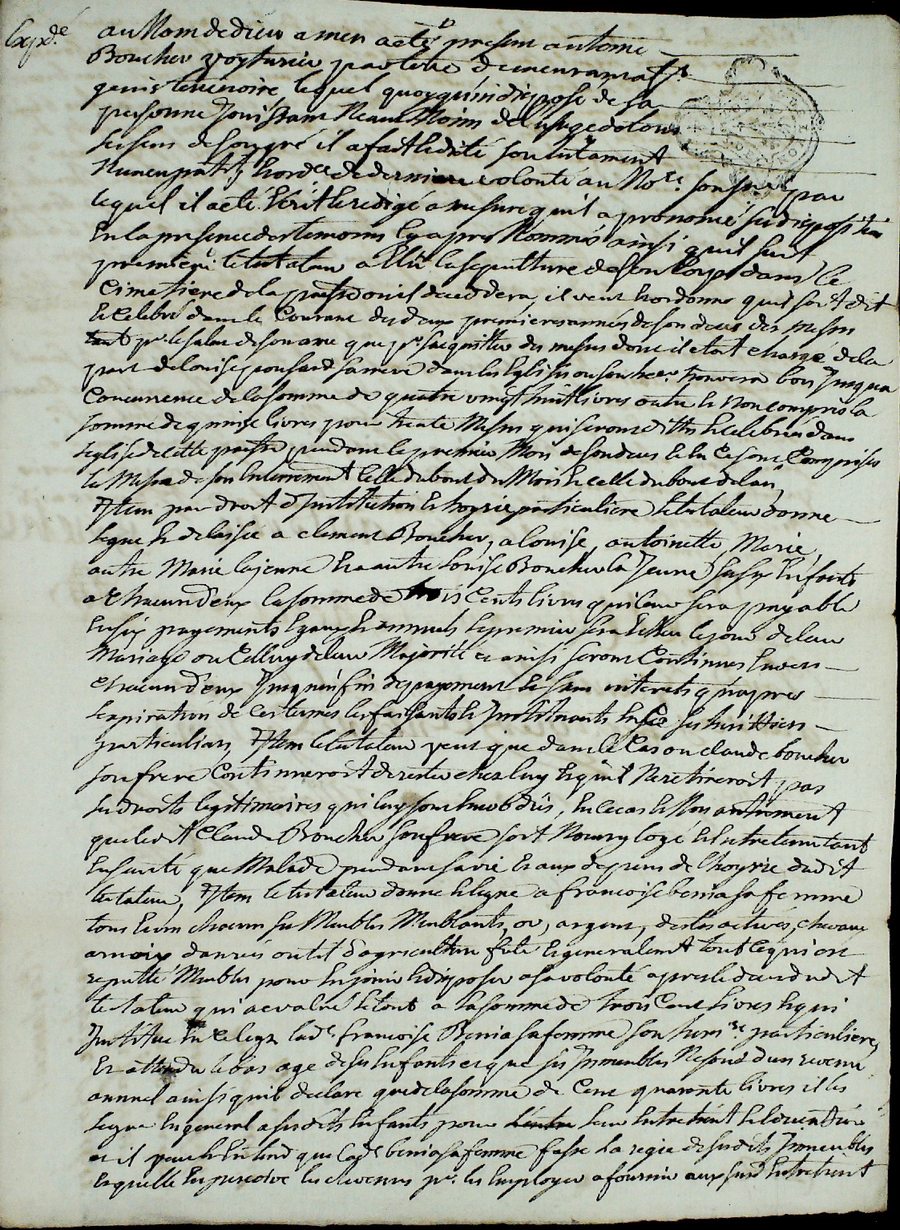 Expd.é
au Nom de dieu amen a eté present antoine
Boucher voyturier par terre demeurant a St
quins lequel quoyqu'indisposé de sa
personne jouissant Neantmoins de l'usage de tous
ses sens de son gré il a fait et dité son testament
Nuncupatif et ord.ce de derniere volonté au No.re soussigné par
lequel il a eté Ecrit et redigé a mesure qu'il a prononcé ses dispositions
En la presence des temoins cy apres Nommés ainsi qu'il suit
premierem.t le testateur a Elu la sepulture de son corps dans le
Cimetiere de la parroisse d'ou il decedera, il veut et ordonne qu'il soit dit
et Celebré dans le Courant des deux premieres années de son deces des messes
p.r le salut de son ame que p.r s'acquitter des messes dont il etoit chargé de la
part de louise ponsard sa mere dans les Eglises ou son her. trouvera bon jusqu'a
Concurrence de la somme de quatre vingt huit livres outre et Non compris la
somme de quinze livres pour trente Messes qui seront dittes et celebrées dans
l'eglise de cette parroisse pendant le premier Mois de son deces et En ce sont Comprises
les Messes de son Enterrement Celle du bout du Mois et celle du bout de l'an,
Item par droit d'institution et hoyrie particuliere le testateur donne
legue et delaisse a clement Boucher, a louise, antoinette, Marie,
autre Marie la jeune et a autre louise Boucher la jeune ses six Enfants
a Chacun d'eux la somme de trois Cents livres qui leur sera payable
En six payements Egaux et annuels le premier sera Echu le jour de leur
Mariage ou Celluy de leur Majorité et ainsi seront Continués Envers
chacun d'eux jusqu'a fin de payement et sans interets qu'apres
l'expiration de ces termes les faisants et Instituants En ce ses heritiers
particuliers, Item le testateur veut que dans le Cas ou claude boucher
son frere Continueroit de rester chez luy et qu'il Ne retireroit pas
ses droits legitimaires qui luy sont Encor dûs, En ce cas et Non autrement
que led.t Claude Boucher son frere soit Nourry logé et Entretenu tant
En santé que Malade pendant sa vie et aux depens de l'hoyrie dud.t
testateur, Item le testateur donne et legue a francoise benia sa femme
tous et un chacun ses Meubles Meublants, or, argent, dettes actives, chevaux
arnoix denrées outils d'agriculture et generalement tout ce qui est
reputté Meubles pour En jouir et disposer a sa volonté apres le deces dud.t
testateur qui a evalué le tout a la somme de trois Cent livres et qui
Institue En ce legs lad.e francoise Benia sa femme son heri.re particuliere,
Et attendu le bas age de ses Enfants et que ses jmmeubles Ne sont d'un revenu
annuel ainsi qu'il declare que de la somme de Cent quarante livres il les
legue En general a sesdits Enfants pour leur Entretient et
et il veut et Entend que lad.e benia sa femme fasse la regie de sesdits Immeubles
laquelle En percevra les Revenus p.r les Employer a fournir aux susd.ts Entretient